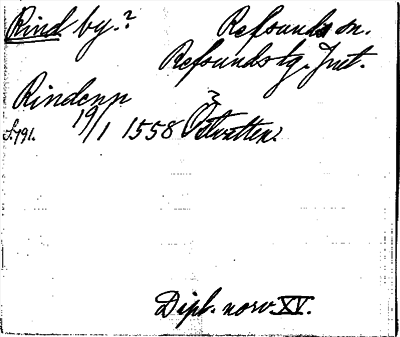 Rind by.? Refsunds sn.
Refsunds tg. Jmt.
Rindenn
S. 191. 19/1 1558 Östvatten.
Dipl. norv. XV.